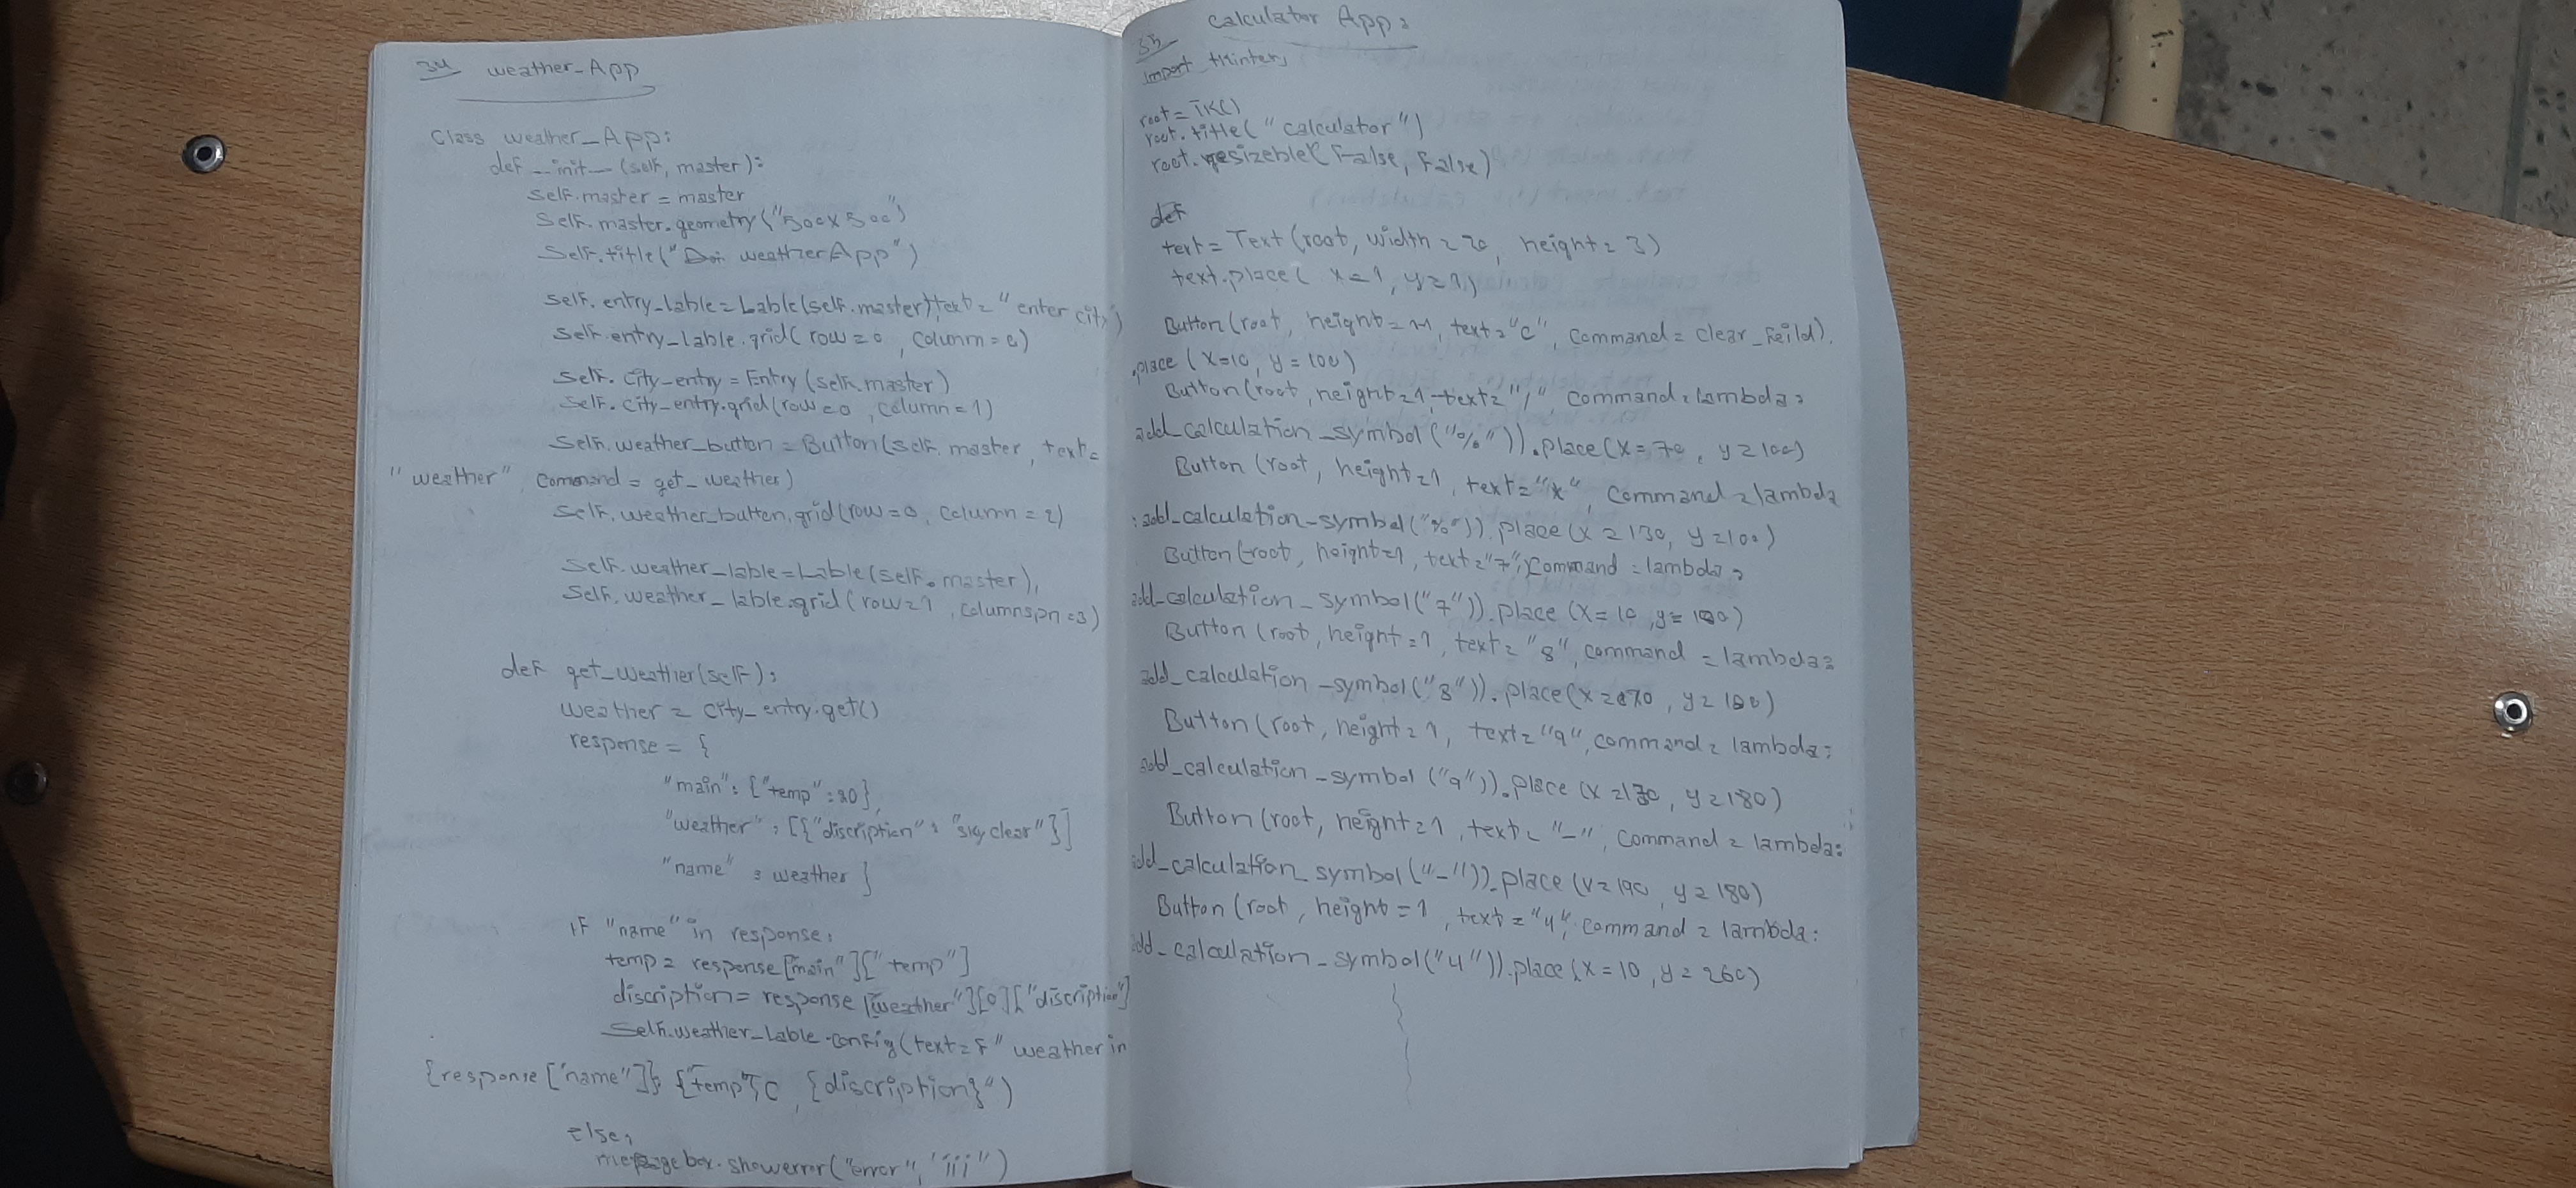 34 weather_App
Class weather_App:
def __init__(self, master):
self.master = master
self.master.geometry("500x500")
self.title(" weatherApp")
self.entry_lable = Lable(self.master),text = "enter city)
self.entry_lable.grid(row=0, column=0)
self.city_entry = Entry(self.master)
self.city_entry.grid(row=0, column=1)
self.weather_button = Button(self.master, text=
"weather", command = get_weather)
self.weather_button.grid(row=0, column=2)
self.weather_lable = Lable(self.master),
self.weather_lable.grid(row=1, columnspn=3)
def get_weather(self):
weather = city_entry.get()
response = {
"main": {"temp":30},
"weather": [{"discription": "sky,clear"}]
"name": weather }
if "name" in response:
temp = response["main"]["temp"]
discription = response["weather"][0]["discription"]
self.weather_lable.config(text=f" weather in
{response['name"]} {temp}c, {discription}")
else:
.showerror("error", "iii")
Calculator App:
import tkinter
root = TK()
root.title("calculator")
root.resizeble(False, False)
def
text = Text(root, width=20, height=3)
text.place(x=1, y=1)
Button(root, height=1, text="c", command = clear_feild).
.place(x=10, y=100)
Button(root, height=1, text="/" command=lambda:
add_calculation_symbol("%")).place(x=70, y=100)
Button (root, height=1, text="*" command=lambda
:add_calculation_symbol("*")).place(x=130, y=100)
Button(root, height=1, text="7", command=lambda:
add_calculation_symbol("7")).place(x=10, y=180)
Button (root, height=1, text="8", command=lambda:
add_calculation_symbol("8")).place(x=70, y=180)
Button(root, height=1, text="9", command=lambda:
add_calculation_symbol("9")).place(x=130, y=180)
Button(root, height=1, text="-", command=lambda:
add_calculation_symbol("-")).place(x=190, y=180)
Button(root, height=1, text="4", command=lambda:
add_calculation_symbol("4")).place(x=10, y=260)